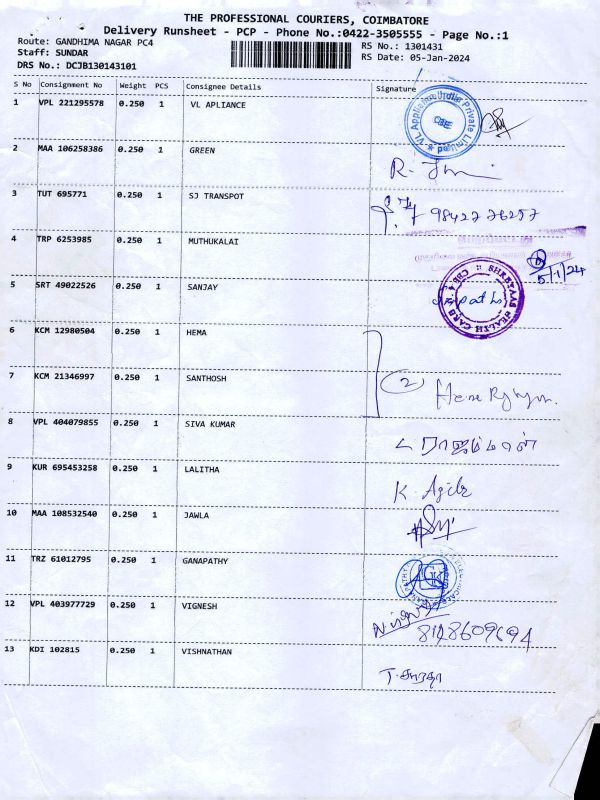 THE PROFESSIONAL COURIERS, COIMBATORE
Delivery Runsheet - PCP - Phone No.:0422-3505555 - Page No.:1
Route: GANDHIMA NAGAR PC4
RS No.: 1301431
Staff: SUNDAR
RS Date: 05-Jan-2024
DRS No.: DCJB130143101
S No Consignment No Weight PCS Consignee Details Signature
1 VPL 221295578 0.250 1 VL APLIANCE
2 MAA 106258386 0.250 1 GREEN
3 TUT 695771 0.250 1 SJ TRANSPOT 98422 26257
4 TRP 6253985 0.250 1 MUTHUKALAI
5/1/24
5 SRT 49022526 0.250 1 SANJAY
6 KCM 12980504 0.250 1 HEMA
7 KCM 21346997 0.250 1 SANTHOSH 2
8 VPL 404079855 0.250 1 SIVA KUMAR
9 KUR 695453258 0.250 1 LALITHA
10 MAA 108532540 0.250 1 JAWLA
11 TRZ 61012795 0.250 1 GANAPATHY
12 VPL 403977729 0.250 1 VIGNESH
13 KDI 102815 0.250 1 VISHNATHAN